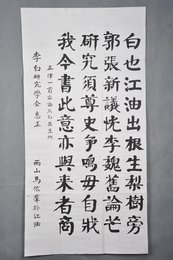 白也江油出根生梨樹旁
郭張新議恍李魏舊論芒
研究須尊史争鳴毋自戕
我今書此意亦與来者商
五律一首
李白研究学会 惠正
雨山馬